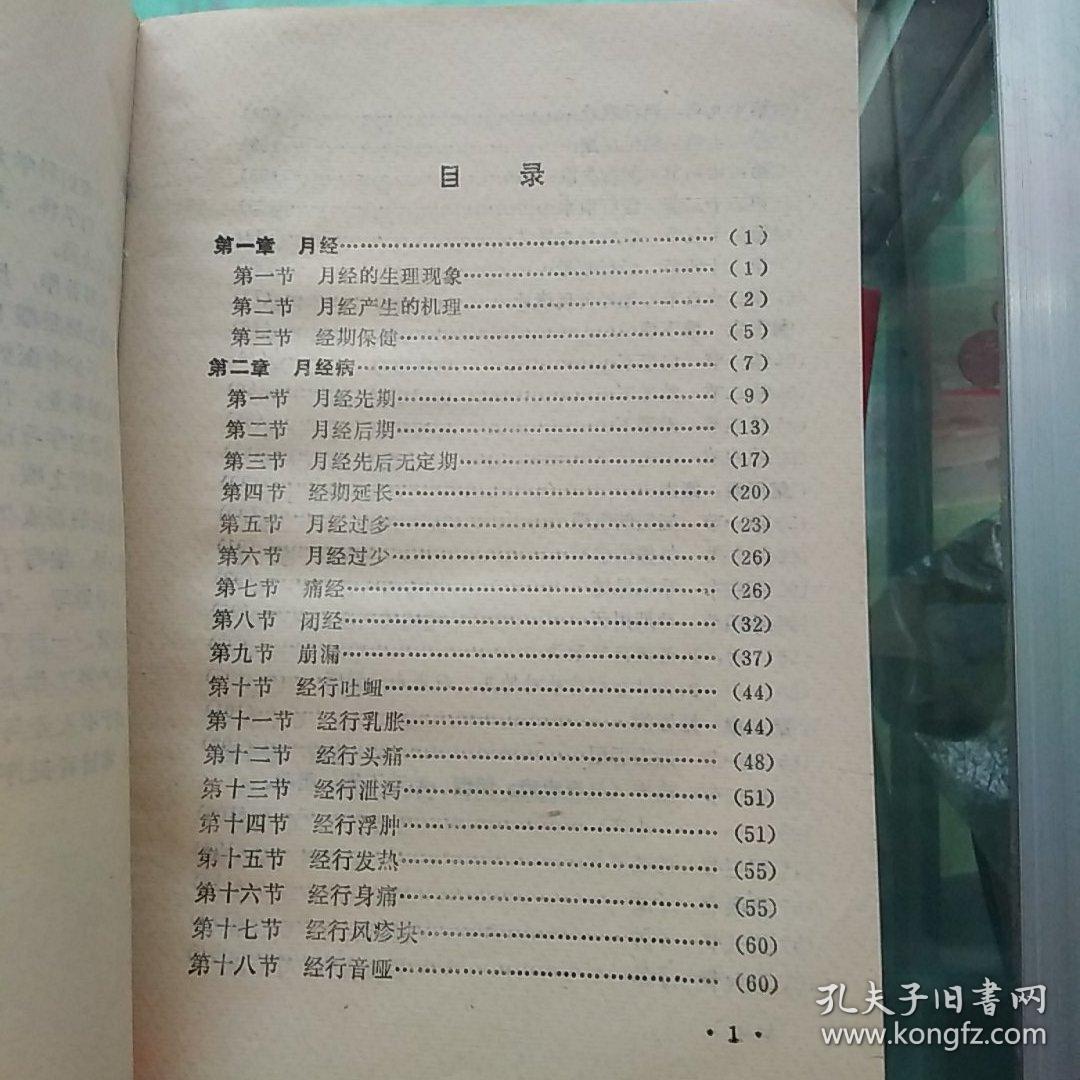 目 录
第一章 月经……………………………………………(1)
第一节 月经的生理现象………………………………(1)
第二节 月经产生的机理………………………………(2)
第三节 经期保健………………………………………(5)
第二章 月经病…………………………………………(7)
第一节 月经先期………………………………………(9)
第二节 月经后期………………………………………(13)
第三节 月经先后无定期………………………………(17)
第四节 经期延长………………………………………(20)
第五节 月经过多………………………………………(23)
第六节 月经过少………………………………………(26)
第七节 痛经……………………………………………(26)
第八节 闭经……………………………………………(32)
第九节 崩漏……………………………………………(37)
第十节 经行吐衄………………………………………(44)
第十一节 经行乳胀……………………………………(44)
第十二节 经行头痛……………………………………(48)
第十三节 经行泄泻……………………………………(51)
第十四节 经行浮肿……………………………………(51)
第十五节 经行发热……………………………………(55)
第十六节 经行身痛……………………………………(55)
第十七节 经行风疹块…………………………………(60)
第十八节 经行音哑……………………………………(60)
·1·
孔夫子旧書网
www.kongfz.com